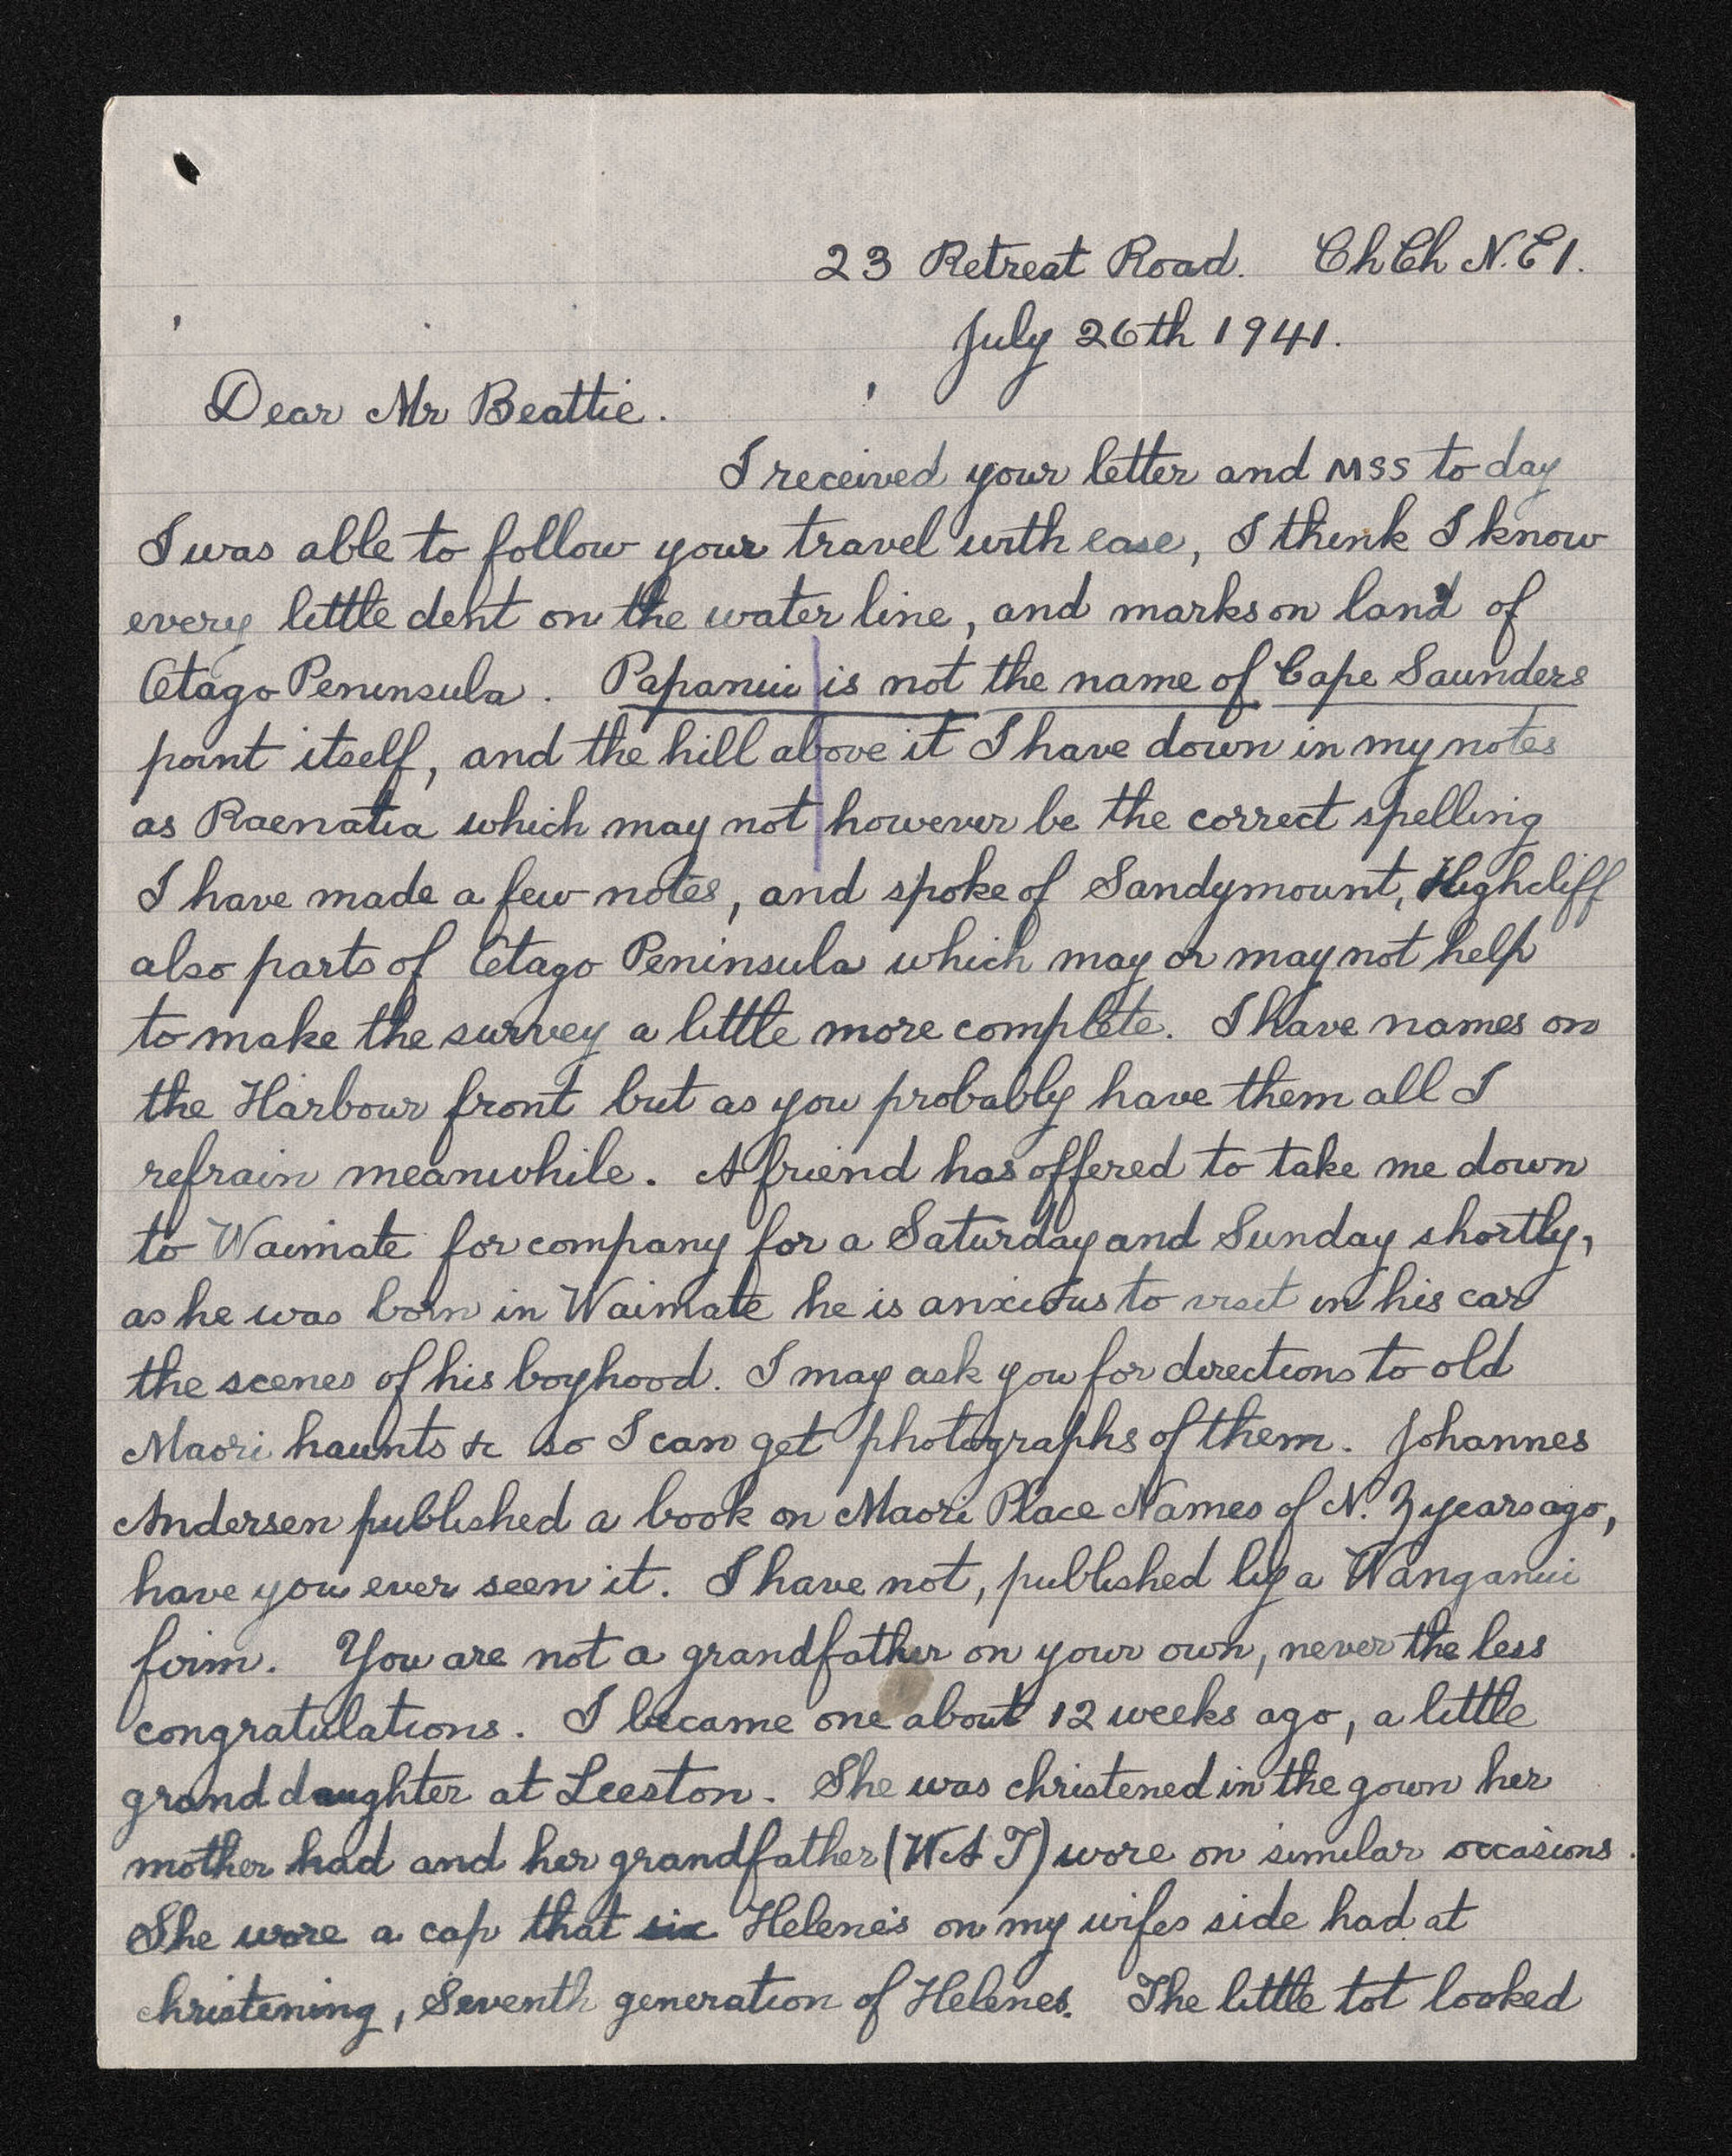 23 Retreat Road. ChCh N.E1.
July 26th 1941.
Dear Mr Beattie.
I received your letter and MSS to day
I was able to follow your travel with ease, I think I know
every little dent on the water line, and marks on land of
Otago Peninsula. Papanui is not the name of Cape Saunders
point itself, and the hill above it I have down in my notes
as Raenatia which may not however be the correct spelling
I have made a few notes, and spoke of Sandymount, Highcliff
also parts of Otago Peninsula which may or may not help
to make the survey a little more complete. I have names on
the Harbour front but as you probably have them all I
refrain meanwhile. A friend has offered to take me down
to Waimate for company for a Saturday and Sunday shortly,
as he was born in Waimate he is anxious to visit in his car
the scenes of his boyhood. I may ask you for directions to old
Maori haunts &c so I can get photographs of them. Johannes
Andersen published a book on Maori Place Names of N. Z years ago,
have you ever seen it. I have not, published by a Wanganui
firm. You are not a grandfather on your own, never the less
congratulations. I became one about 12 weeks ago, a little
grand daughter at Leeston. She was christened in the gown her
mother had and her grandfather (WAT) wore on similar occasions.
She wore a cap that six Helene's on my wifes side had at
christening, Seventh generation of Helenes. The little tot looked